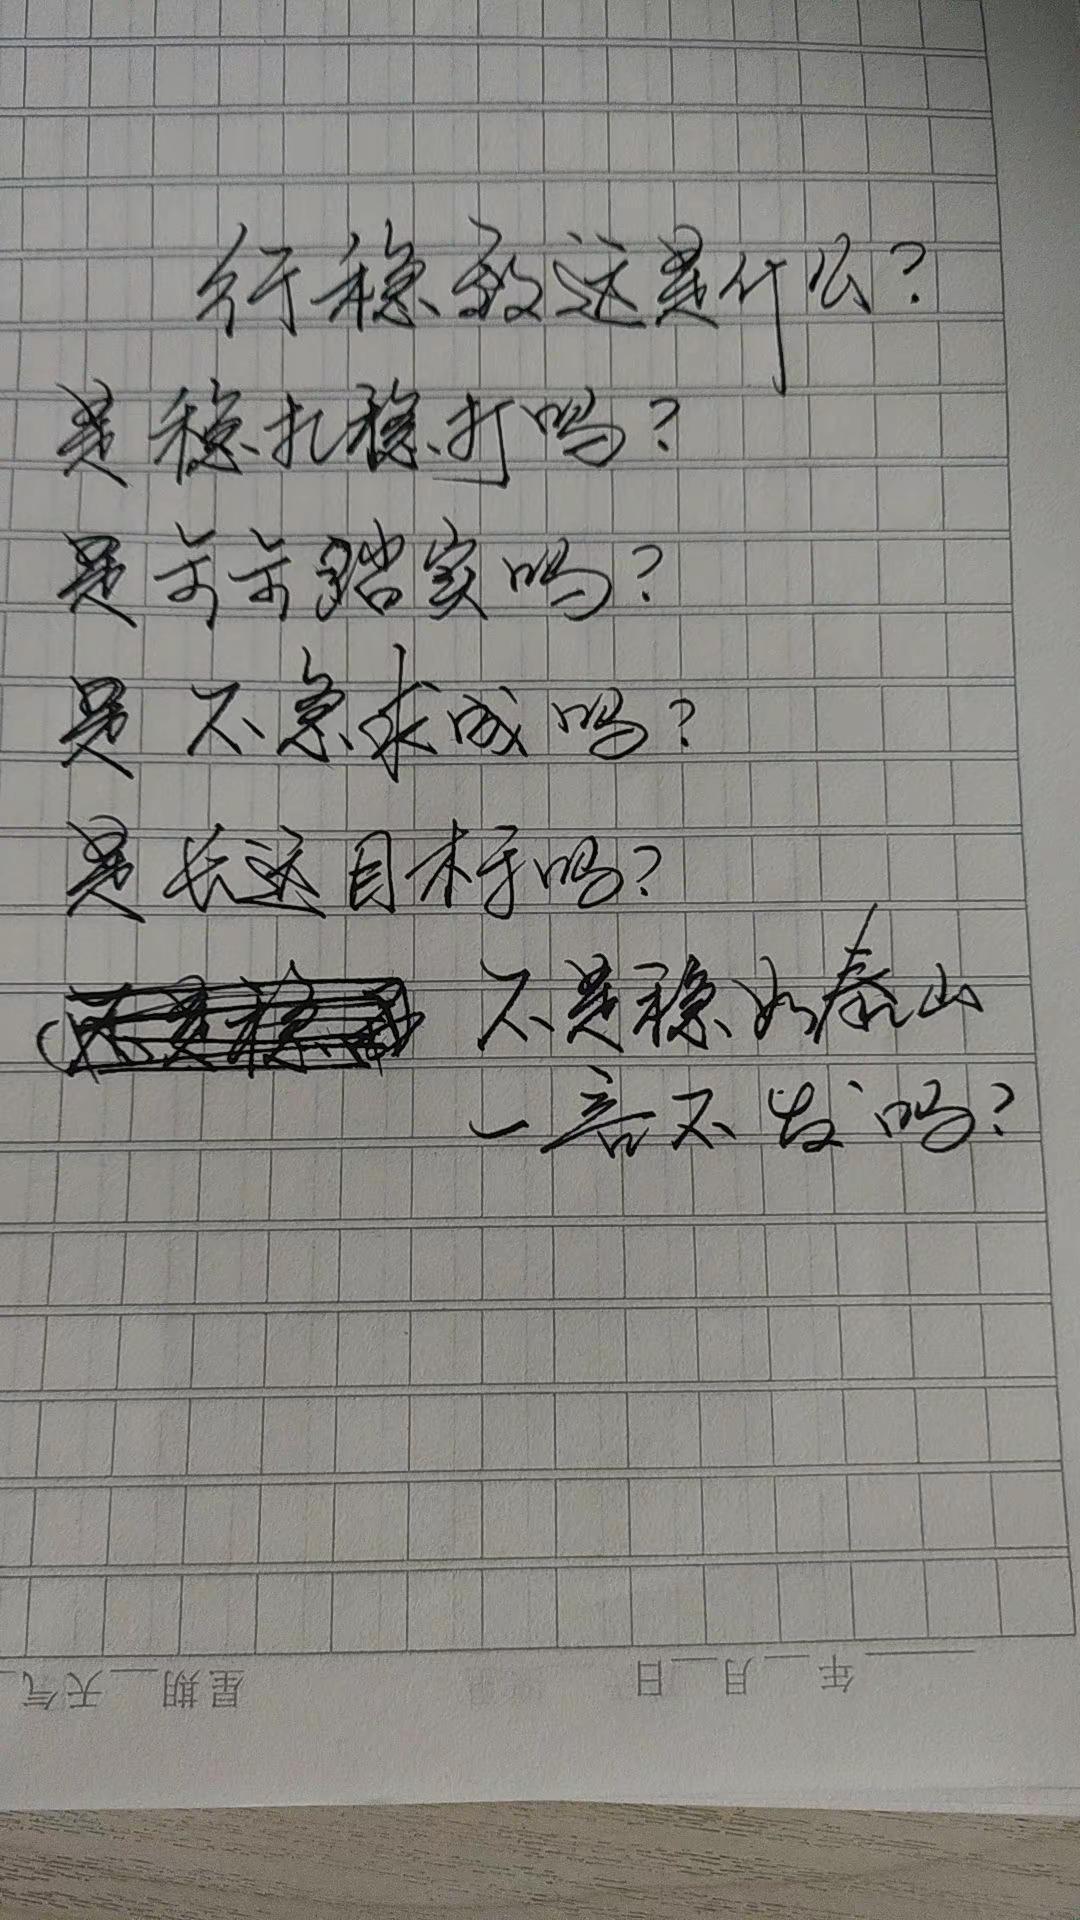 行稳致远是什么?
是稳扎稳打吗?
是步步踏实吗?
是不急求成吗?
是长远目标吗?
不是稳如泰山
一言不发吗?
年 月 日 星期 天气